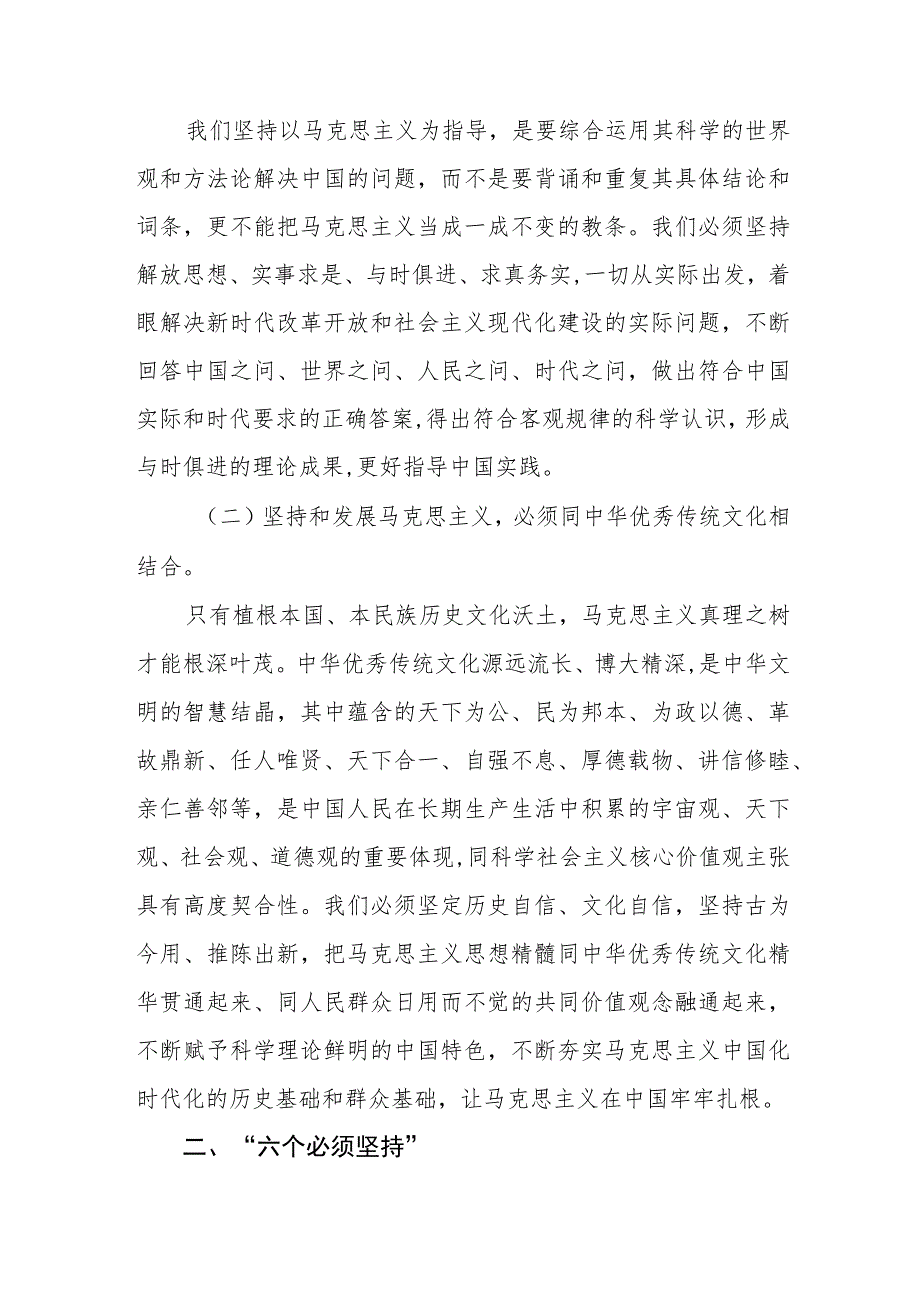 我们坚持以马克思主义为指导，是要综合运用其科学的世界
观和方法论解决中国的问题，而不是要背诵和重复其具体结论和
词条，更不能把马克思主义当成一成不变的教条。我们必须坚持
解放思想、实事求是、与时俱进、求真务实,一切从实际出发，着
眼解决新时代改革开放和社会主义现代化建设的实际问题，不断
回答中国之问、世界之问、人民之问、时代之问，做出符合中国
实际和时代要求的正确答案,得出符合客观规律的科学认识，形成
与时俱进的理论成果,更好指导中国实践。
（二）坚持和发展马克思主义，必须同中华优秀传统文化相
结合。
只有植根本国、本民族历史文化沃土，马克思主义真理之树
才能根深叶茂。中华优秀传统文化源远流长、博大精深,是中华文
明的智慧结晶，其中蕴含的天下为公、民为邦本、为政以德、革
故鼎新、任人唯贤、天下合一、自强不息、厚德载物、讲信修睦、
亲仁善邻等，是中国人民在长期生产生活中积累的宇宙观、天下
观、社会观、道德观的重要体现,同科学社会主义核心价值观主张
具有高度契合性。我们必须坚定历史自信、文化自信，坚持古为
今用、推陈出新，把马克思主义思想精髓同中华优秀传统文化精
华贯通起来、同人民群众日用而不觉的共同价值观念融通起来，
不断赋予科学理论鲜明的中国特色，不断夯实马克思主义中国化
时代化的历史基础和群众基础，让马克思主义在中国牢牢扎根。
二、“六个必须坚持”